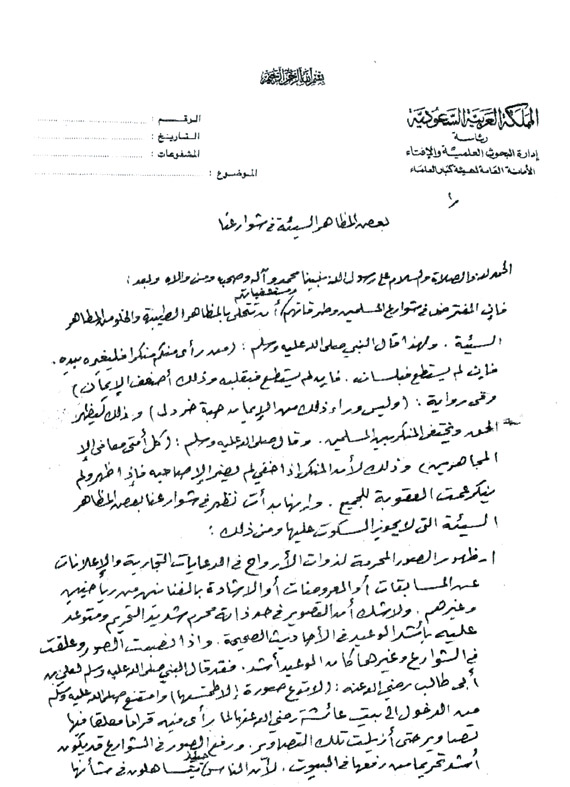 بسم الله الرحمن الرحيم
المملكة العربية السعودية
رئاسة
إدارة البحوث العلمية والإفتاء
الأمانة العامة لهيئة كبار العلماء
الرقم :
التاريخ :
المشفوعات :
الموضوع :
بعض المظاهر السيئة في شوارعنا
الحمد لله والصلاة والسلام على رسول الله نبينا محمد وآله وصحبه ومن والاه وبعد :
فإن المفترض في شوارع المسلمين وطرقاتهم ومستشفياتهم أن تتحلى بالمظاهر الطيبة والخلو من المظاهر
السيئة . ولهذا قال النبي صلى الله عليه وسلم : (من رأى منكم منكرا فليغيره بيده.
فإن لم يستطع فبلسانه . فإن لم يستطع فبقلبه وذلك أضعف الإيمان)
وفي رواية : (وليس وراء ذلك من الإيمان حبة خردل) وذلك ليظهر
الحق ويختفي المنكر بين المسلمين . وقال صلى الله عليه وسلم : (كل أمتي معافى إلا
المجاهرين) وذلك لأن المنكر إذا خفي لم يضر إلا صاحبه فإذا ظهر ولم
ينكر عمت العقوبة للجميع . وإنها بدأت تظهر في شوارعنا بعض المظاهر
السيئة التي لا يجوز السكوت عليها ومن ذلك :
١- ظهور الصور المحرمة لذوات الأرواح في الدعايات التجارية والإعلانات
عن المسابقات أو المعروضات أو الإشادة بالفنانين من رياضيين
وغيرهم . ولا شك أن التصوير في حد ذاته محرم شديد التحريم ومتوعد
عليه بأشد الوعيد في الأحاديث الصحيحة . وإذا نصبت الصور وعلقت
في الشوارع وغيرها كان الوعيد أشد . فقد قال النبي صلى الله عليه وسلم لعلي بن
أبي طالب رضي الله عنه : (لا تدع صورة إلا طمستها) وامتنع صلى الله عليه وسلم
من الدخول إلى بيت عائشة رضي الله عنها لما رأى فيه قراما معلقا فيها
تصاوير حتى أزيلت تلك التصاوير . ورفع الصور في الشوارع قد يكون
أشد تحريما من رفعها في البيوت . لأن الناس يتساهلون في شأنها